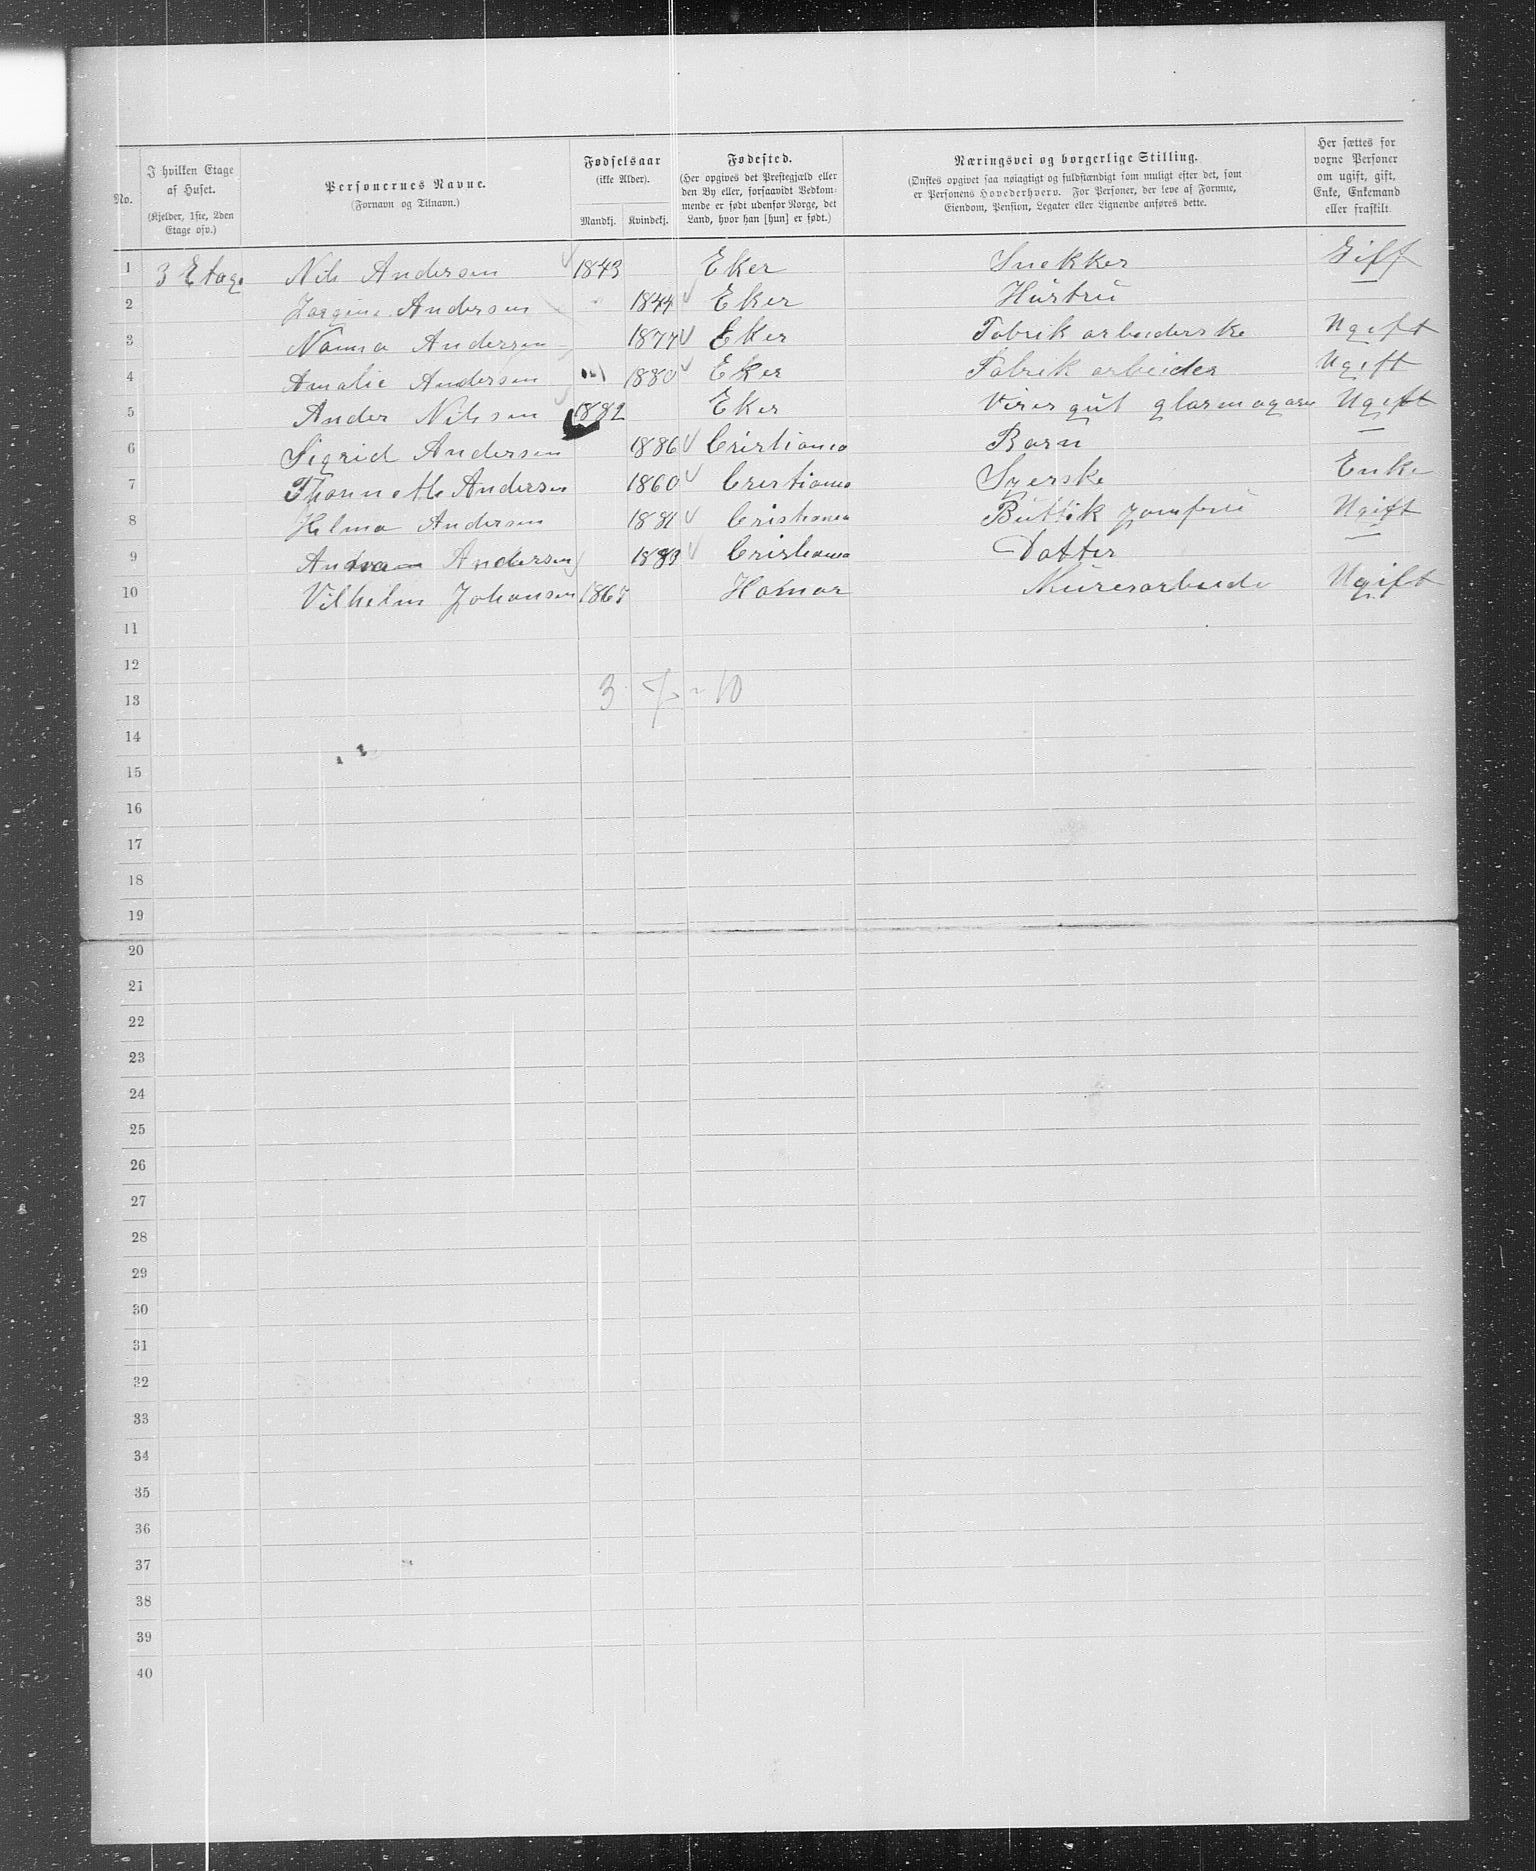 No.
I hvilken Etage
af Huset.
(Kjelder, 1ste, 2den
Etage osv.)
Personernes Navne.
(Fornavn og Tilnavn.)
Fødselsaar
(ikke Alder).
Mandkj. Kvindekj.
Fødested.
(Her opgives det Præstegjæld eller
den By eller, forsaavidt Vedkom-
mende er født udenfor Norge, det
Land, hvor han [hun] er født.)
Næringsvei og borgerlige Stilling.
(Ønskes opgivet saa nøiagtigt og fuldstændigt som muligt efter det, som
er Personens Hovederhverv. For Personer, der leve af Formue,
Eiendom, Pension, Legater eller Lignende anføres dette.
Her sættes for
voxne Personer
om ugift, gift,
Enke, Enkemand
eller fraskilt.
1 3 Etage Nils Andersen 1843 Eker Snekker Gift
2 Jorgine Andersen 1844 Eker Hustru —
3 Nanna Andersen 1877 Eker Fabrik arbeiderske Ugift
4 Amalie Andersen 1880 Eker Fabrik arbeider Ugift
5 Ander Nilsen 1882 Eker Visergut glasmagasin Ugift
6 Sigrid Andersen 1886 Cristiania Barn —
7 Andersen 1860 Cristiania Syerske Enke
8 Helma Andersen 1881 Cristiania Buttik jomfru Ugift
9 Andersen 1883 Cristiania Datter —
10 Vilhelm Johansen 1867 Hamar Muresarbeide Ugift
11
12
13 3 7 = 10
14
15
16
17
18
19
20
21
22
23
24
25
26
27
28
29
30
31
32
33
34
35
36
37
38
39
40